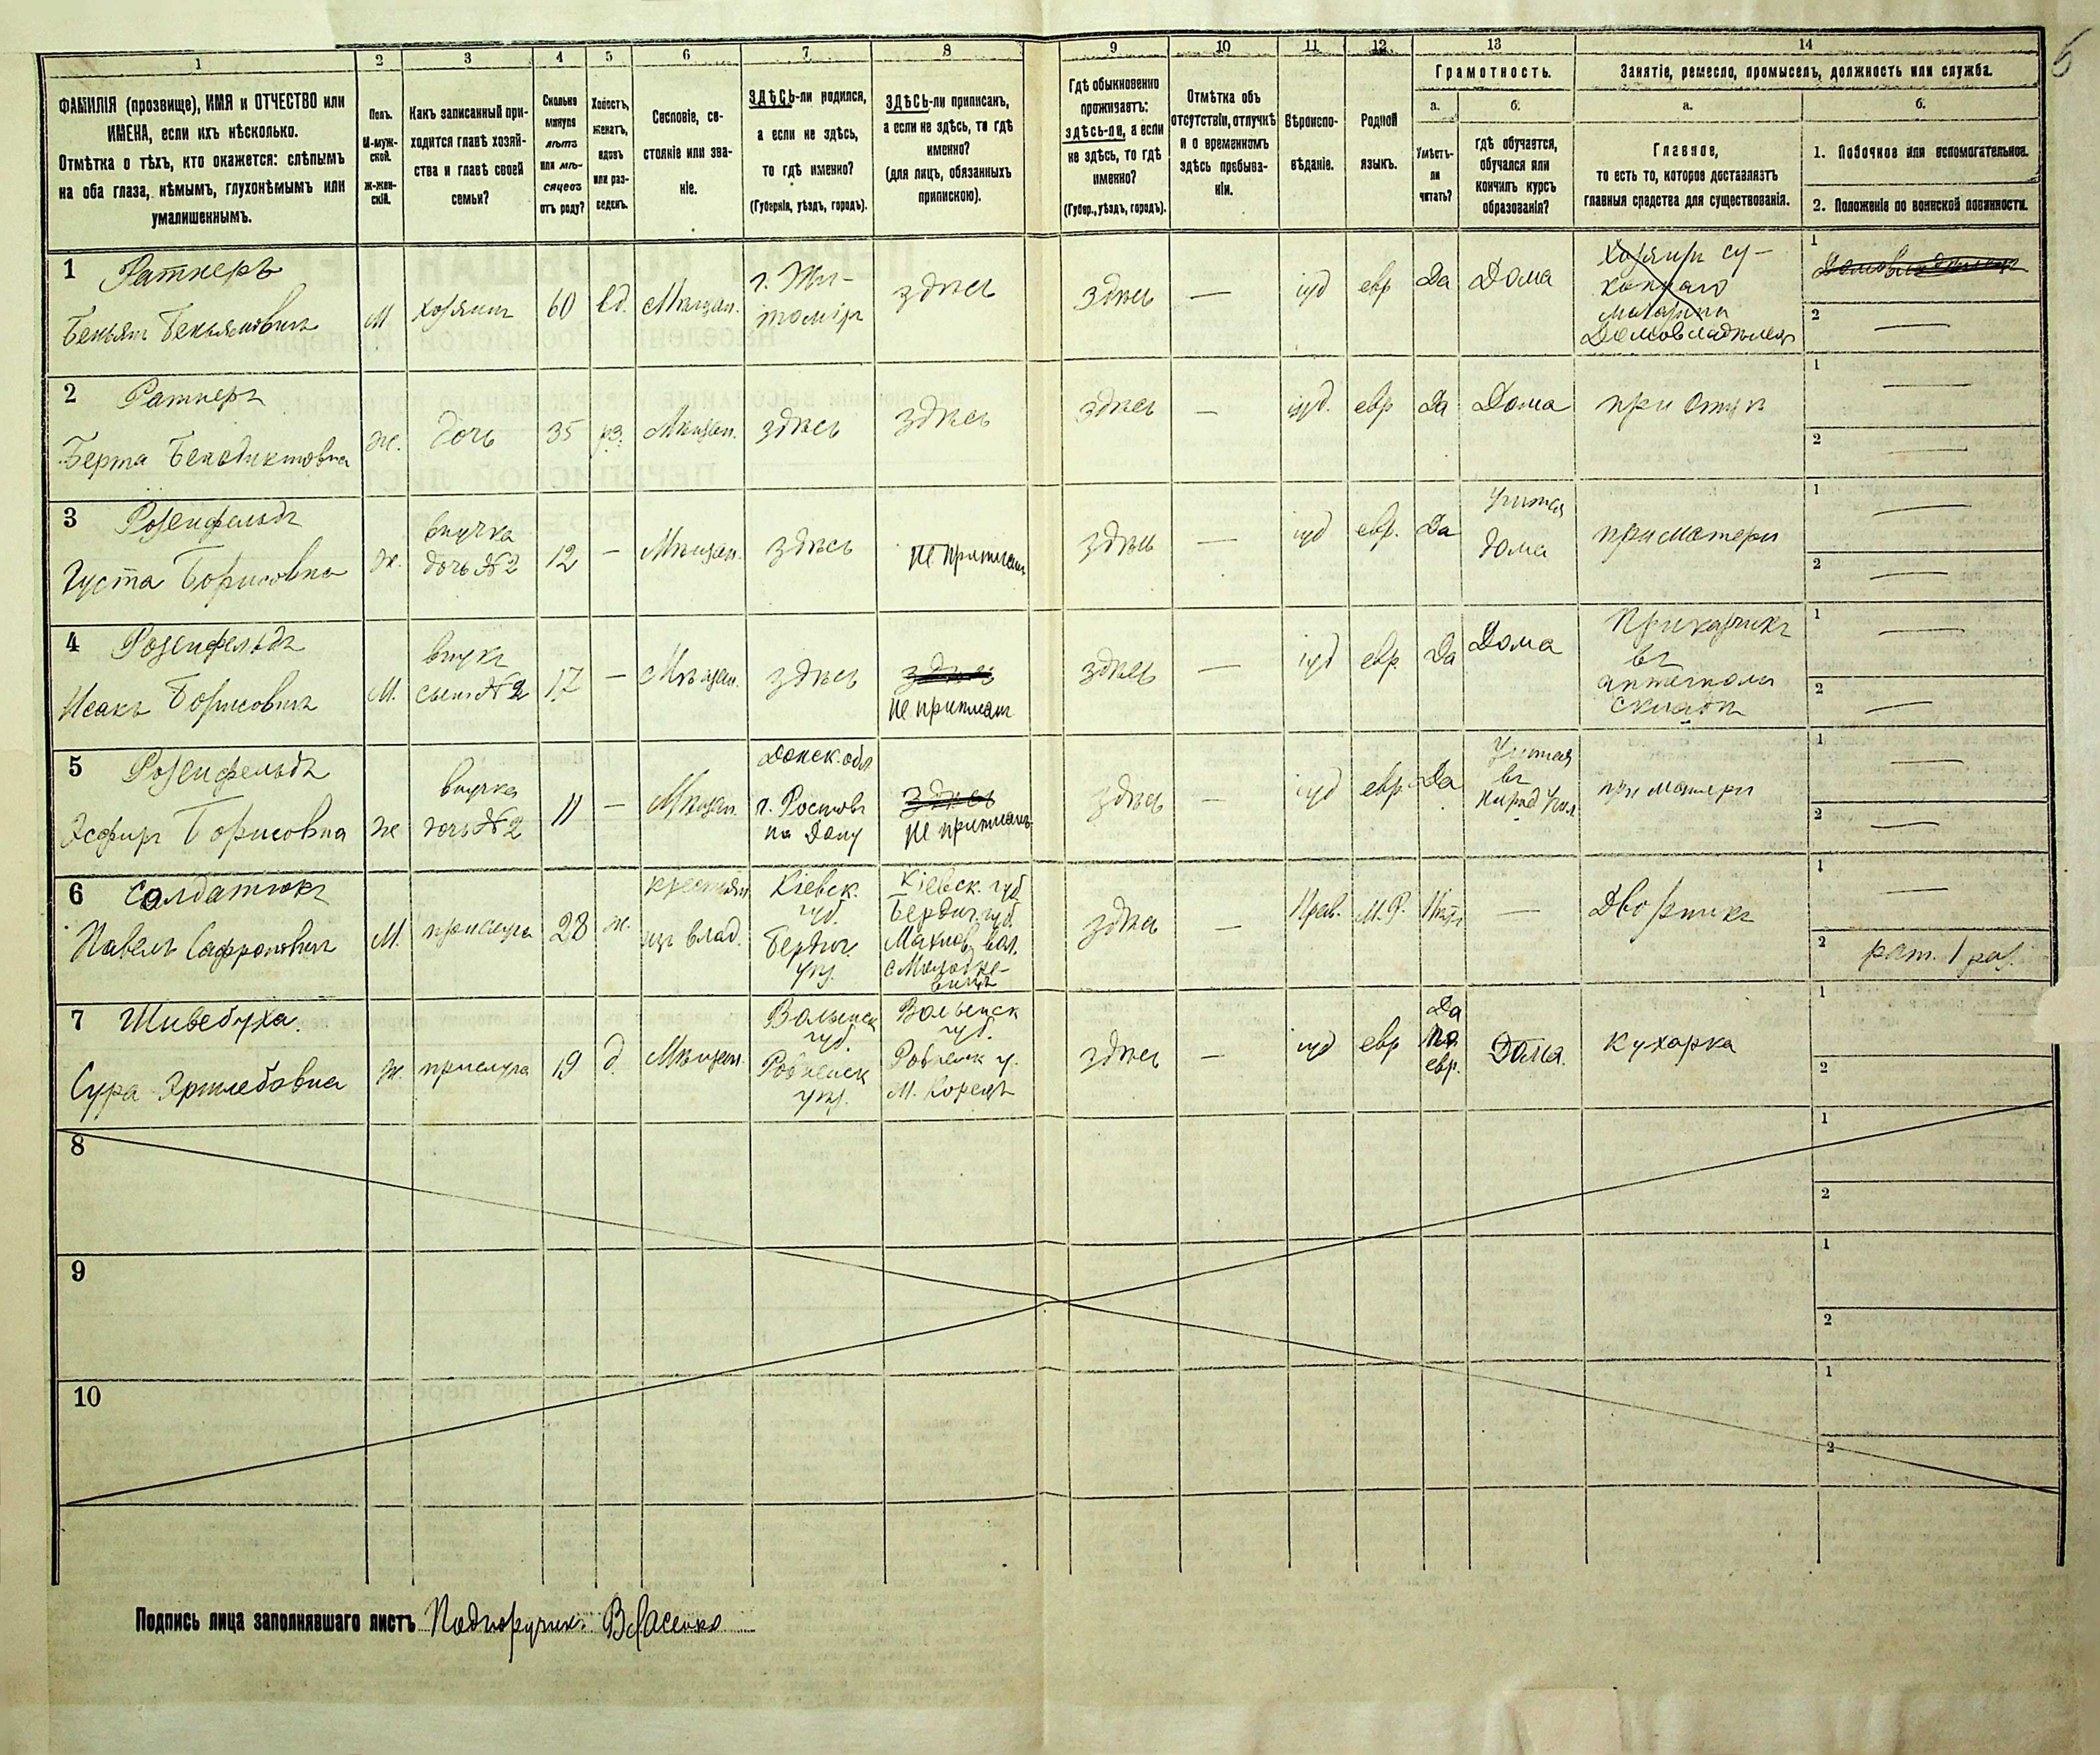 1 2 3 4 5 6 7 8 9 10 11 12 13 14
ФАМИЛІЯ (прозвище), ИМЯ и ОТЧЕСТВО или
ИМЕНА, если ихъ нѣсколько.
Отмѣтка о тѣхъ, кто окажется: слѣпымъ
на оба глаза, нѣмымъ, глухонѣмымъ или
умалишеннымъ.
Полъ.
М-муж-
ской.
Ж-жен-
скій.
Какъ записанный при-
ходится главѣ хозяй-
ства и главѣ своей
семьи?
Сколько
минуло
лѣтъ
или мѣ-
сяцевъ
отъ роду?
Холостъ,
женатъ,
вдовъ
или раз-
веденъ.
Сословіе, со-
стояніе или зва-
ніе.
ЗДѢСЬ-ли родился,
а если не здѣсь,
то гдѣ именно?
(Губернія, уѣздъ, городъ).
ЗДѢСЬ-ли приписанъ,
а если не здѣсь, то гдѣ
именно?
(для лицъ, обязанныхъ
припискою).
Гдѣ обыкновенно
проживаетъ:
здѣсь-ли, а если
не здѣсь, то гдѣ
именно?
(Губер., уѣздъ, городъ).
Отмѣтка объ
отсутствіи, отлучкѣ
и о временномъ
здѣсь пребыва-
ніи.
Вѣроиспо-
вѣданіе.
Родной
языкъ.
Грамотность.
а.
Умѣетъ-
ли
читать?
б.
гдѣ обучается,
обучался или
кончилъ курсъ
образованія?
Занятіе, ремесло, промыселъ, должность или служба.
а.
Главное,
то есть то, которое доставляетъ
главныя средства для существованія.
б.
1. Побочное или вспомогательное.
2. Положеніе по воинской повинности.
1 Ратнеръ
Беньям Беньяминовичъ
М
хозяинъ
60
вд.
Мѣщан.
г. Жи-
томіръ
здѣсь
здѣсь
—
іуд
евр
Да
Дома
Хозяинъ су-
коннаго
магазина
Домовладѣлецъ
1 Домовладѣлецъ
2 —
2 Ратнеръ
Берта Бенедиктовна
Ж.
дочь
35
рз.
Мѣщан.
здѣсь
здѣсь
здѣсь
—
іуд.
евр
Да
Дома
при отцѣ
1 —
2 —
3 Розенфельдъ
Густа Борисовна
Ж.
внучка
дочь №2
12
—
Мѣщан.
здѣсь
не приписан
здѣсь
—
іуд
евр.
Да
Учится
дома
при матери
1 —
2 —
4 Розенфельдъ
Исакъ Борисовичъ
М.
внукъ
сынъ №2
17
—
Мѣщан.
здѣсь
здѣсь
не приписан
здѣсь
—
іуд
евр
Да
Дома
Приказчикъ
въ
аптечномъ
складѣ
1 —
2 —
5 Розенфельдъ
Эсфирь Борисовна
Ж
внучка
дочь №2
11
—
Мѣщан.
Донск. обл
г. Ростовъ
на Дону
здѣсь
не приписанъ
здѣсь
—
іуд
евр
Да
Учится
въ
народ. Учил
при матери
1 —
2 —
6 Солдатюкъ
Павелъ Сафроновичъ
М.
прислуга
28
ж.
крестьян
из влад.
Кіевск.
губ.
Бердич.
уѣз.
Кіевск. губ
Бердич. губ.
Махнов. вол.
здѣсь
—
Прав.
М.Р.
Нѣтъ
—
Дворникъ
1 —
2 рат. 1 раз.
7 Шиведуха.
Сура
Ж.
прислуга
19
д.
Мѣщан.
Волынск
губ.
Ровенск
уѣз.
Волынск
губ.
Ровенск у.
М. Корецъ
здѣсь
—
іуд
евр
Да
по
евр.
Дома.
Кухарка
1
2
8
1
2
9
1
2
10
1
2
Подпись лица заполнявшаго листъ Подпоручик. Власенко